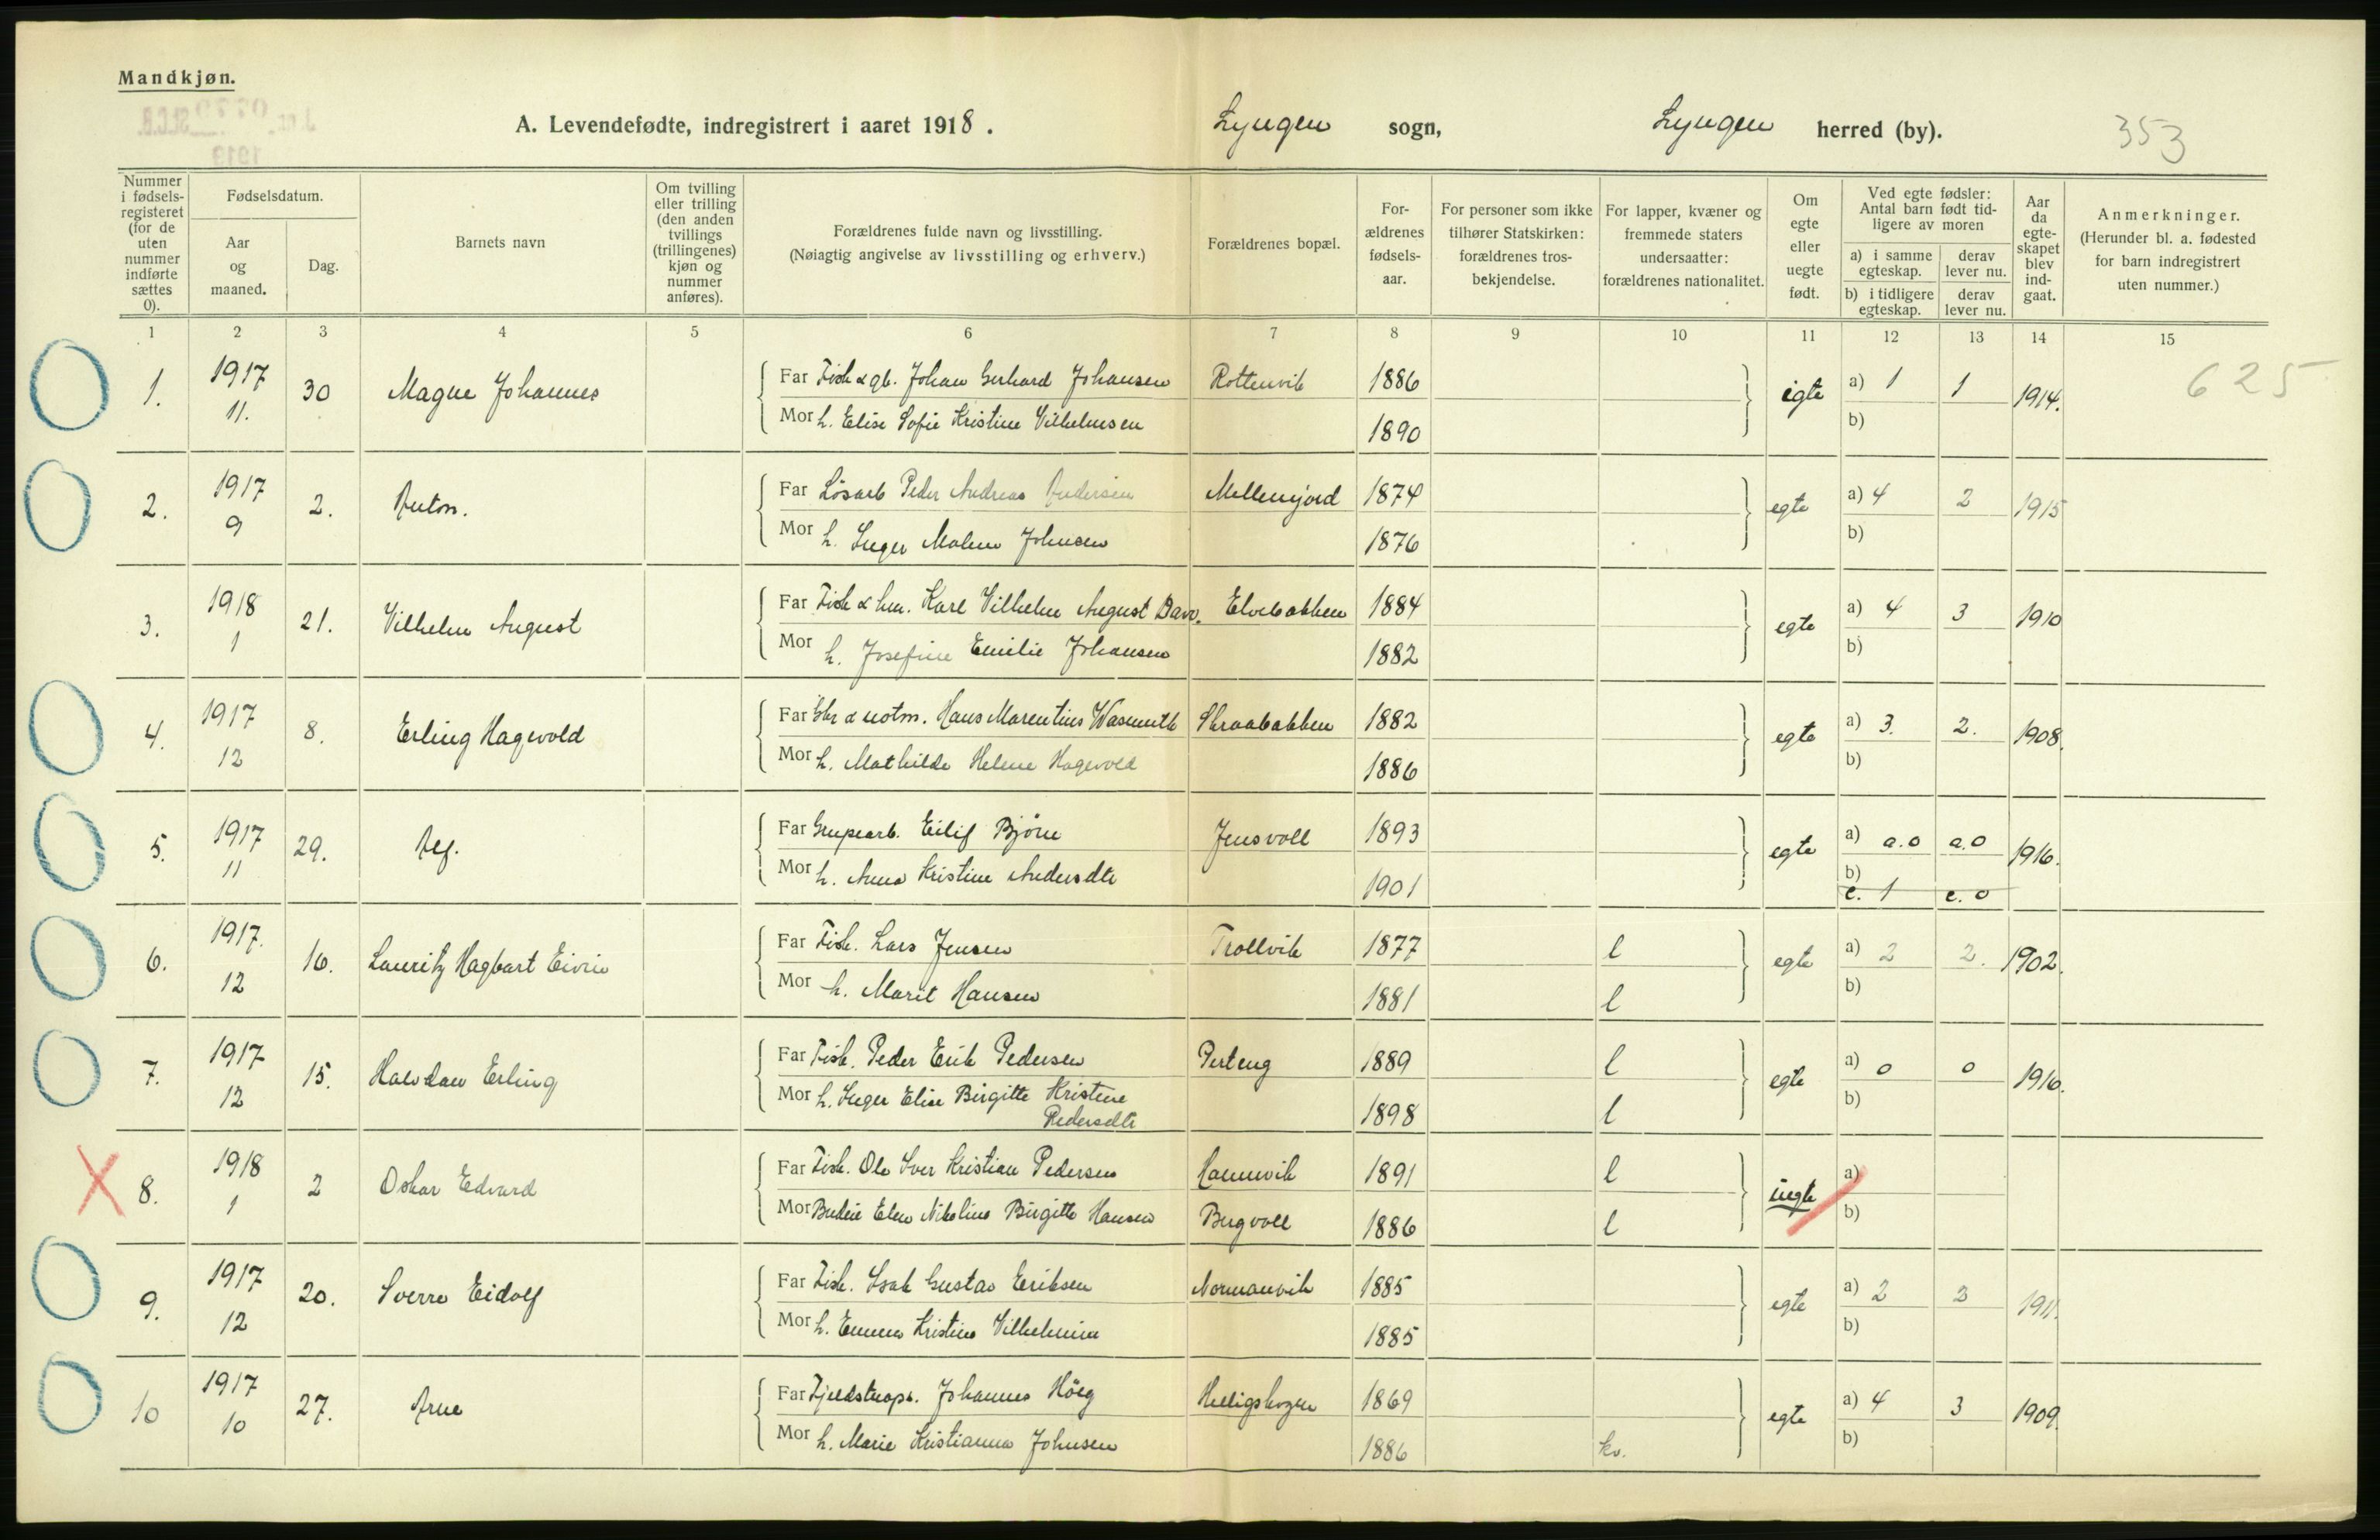 Mandkjøn.
A. Levendefødte, indregistrert i aaret 1918. Lyngen sogn, Lyngen herred (by). 353
Nummer i fødsels-registeret (for de uten nummer indførte sættes 0).
Fødselsdatum.
Aar og maaned.
Dag.
Barnets navn
Om tvilling eller trilling (den anden tvillings (trillingenes) kjøn og nummer anføres).
Forældrenes fulde navn og livsstilling.
(Nøiagtig angivelse av livsstilling og erhverv.)
Forældrenes bopæl.
For-ældrenes fødsels-aar.
For personer som ikke tilhører Statskirken: forældrenes tros-bekjendelse.
For lapper, kvæner og fremmede staters undersaatter: forældrenes nationalitet.
Om egte eller uegte født.
Ved egte fødsler: Antal barn født tid-ligere av moren
a) i samme egteskap. derav lever nu.
b) i tidligere egteskap. derav lever nu.
Aar da egte-skapet blev ind-gaat.
Anmerkninger.
(Herunder bl. a. fødested for barn indregistrert uten nummer.)
1 2 3 4 5 6 7 8 9 10 11 12 13 14 15
1. 1917 11. 30 Magne Johannes Far Fisk & gb. Johan Gerhard Johansen Rottenvik 1886 egte a) 1 1 1914. 625
Mor h. Elise Sofie Kristine Vilhelmsen 1890 b)
2. 1917 9 2. Anton. Far Lösarb Peder Andreas Andersen Mellemjord 1874 egte a) 4 2 1915
Mor h. Inger Malene Johnsen 1876 b)
3. 1918 1 21. Vilhelm August Far Fisk & hm. Karl Vilhelm August Elvebakken 1884 egte a) 4 3 1910
Mor h. Josefine Emilie Johansen 1882 b)
4. 1917 12 8. Erling Hagevold Far Gbr & notm. Hans Marentius Wasmuth Skraabakken 1882 egte a) 3. 2. 1908.
Mor h. Mathilde Helene Hagevold 1886 b)
5. 1917 11 29. Alf. Far Grupearb. Eilif Björu Jensvoll 1893 egte a) a.0 a.0 1916.
Mor h. Anna Kristine Andersdtr 1901 b) c. 1 c. 0
6. 1917. 12 16. Lauritz Hagbart Eivin Far Fisk. Lars Jensen Trollvik 1877 l egte a) 2 2. 1902.
Mor h. Marit Hansen 1881 l b)
7. 1917 12 15. Halvdan Erling Far Fisk. Peder Erik Pedersen Perteng 1889 l egte a) 0 0 1916.
Mor h. Inger Elise Birgitte Kristine 1898 l b)
Pedersdtr
8. 1918 1 2 Oskar Edvard Far Fisk. Ole Iver Kristian Pedersen Havnnvik 1891 l uegte a)
Mor Budeie Elen Nikoline Birgitte Hansen Bergvoll 1886 l b)
9. 1917 12 20. Sverre Eidolf Far Fisk. Isak Gustav Eriksen Normanvik 1885 egte a) 2 2 1911.
Mor h. Emma Kristine Vilhelmine 1885 b)
10 1917 10 27. Arne Far Fjeldstueop. Johannes Höeg Helligskogen 1869 egte a) 4 3 1909.
Mor h. Marie Kristianna Johnsen 1886 kv. b)